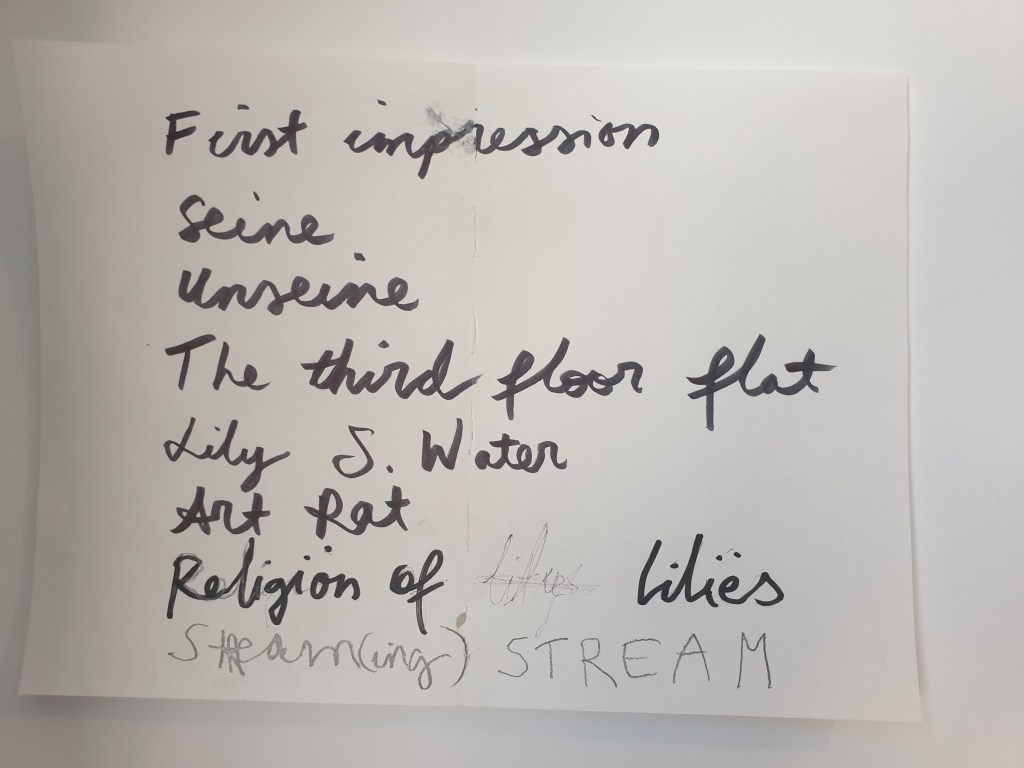 First impression
Seine
Unseine
The third floor flat
Lily S. Water
Art Rat
Religion of lilies
(ing) STREAM